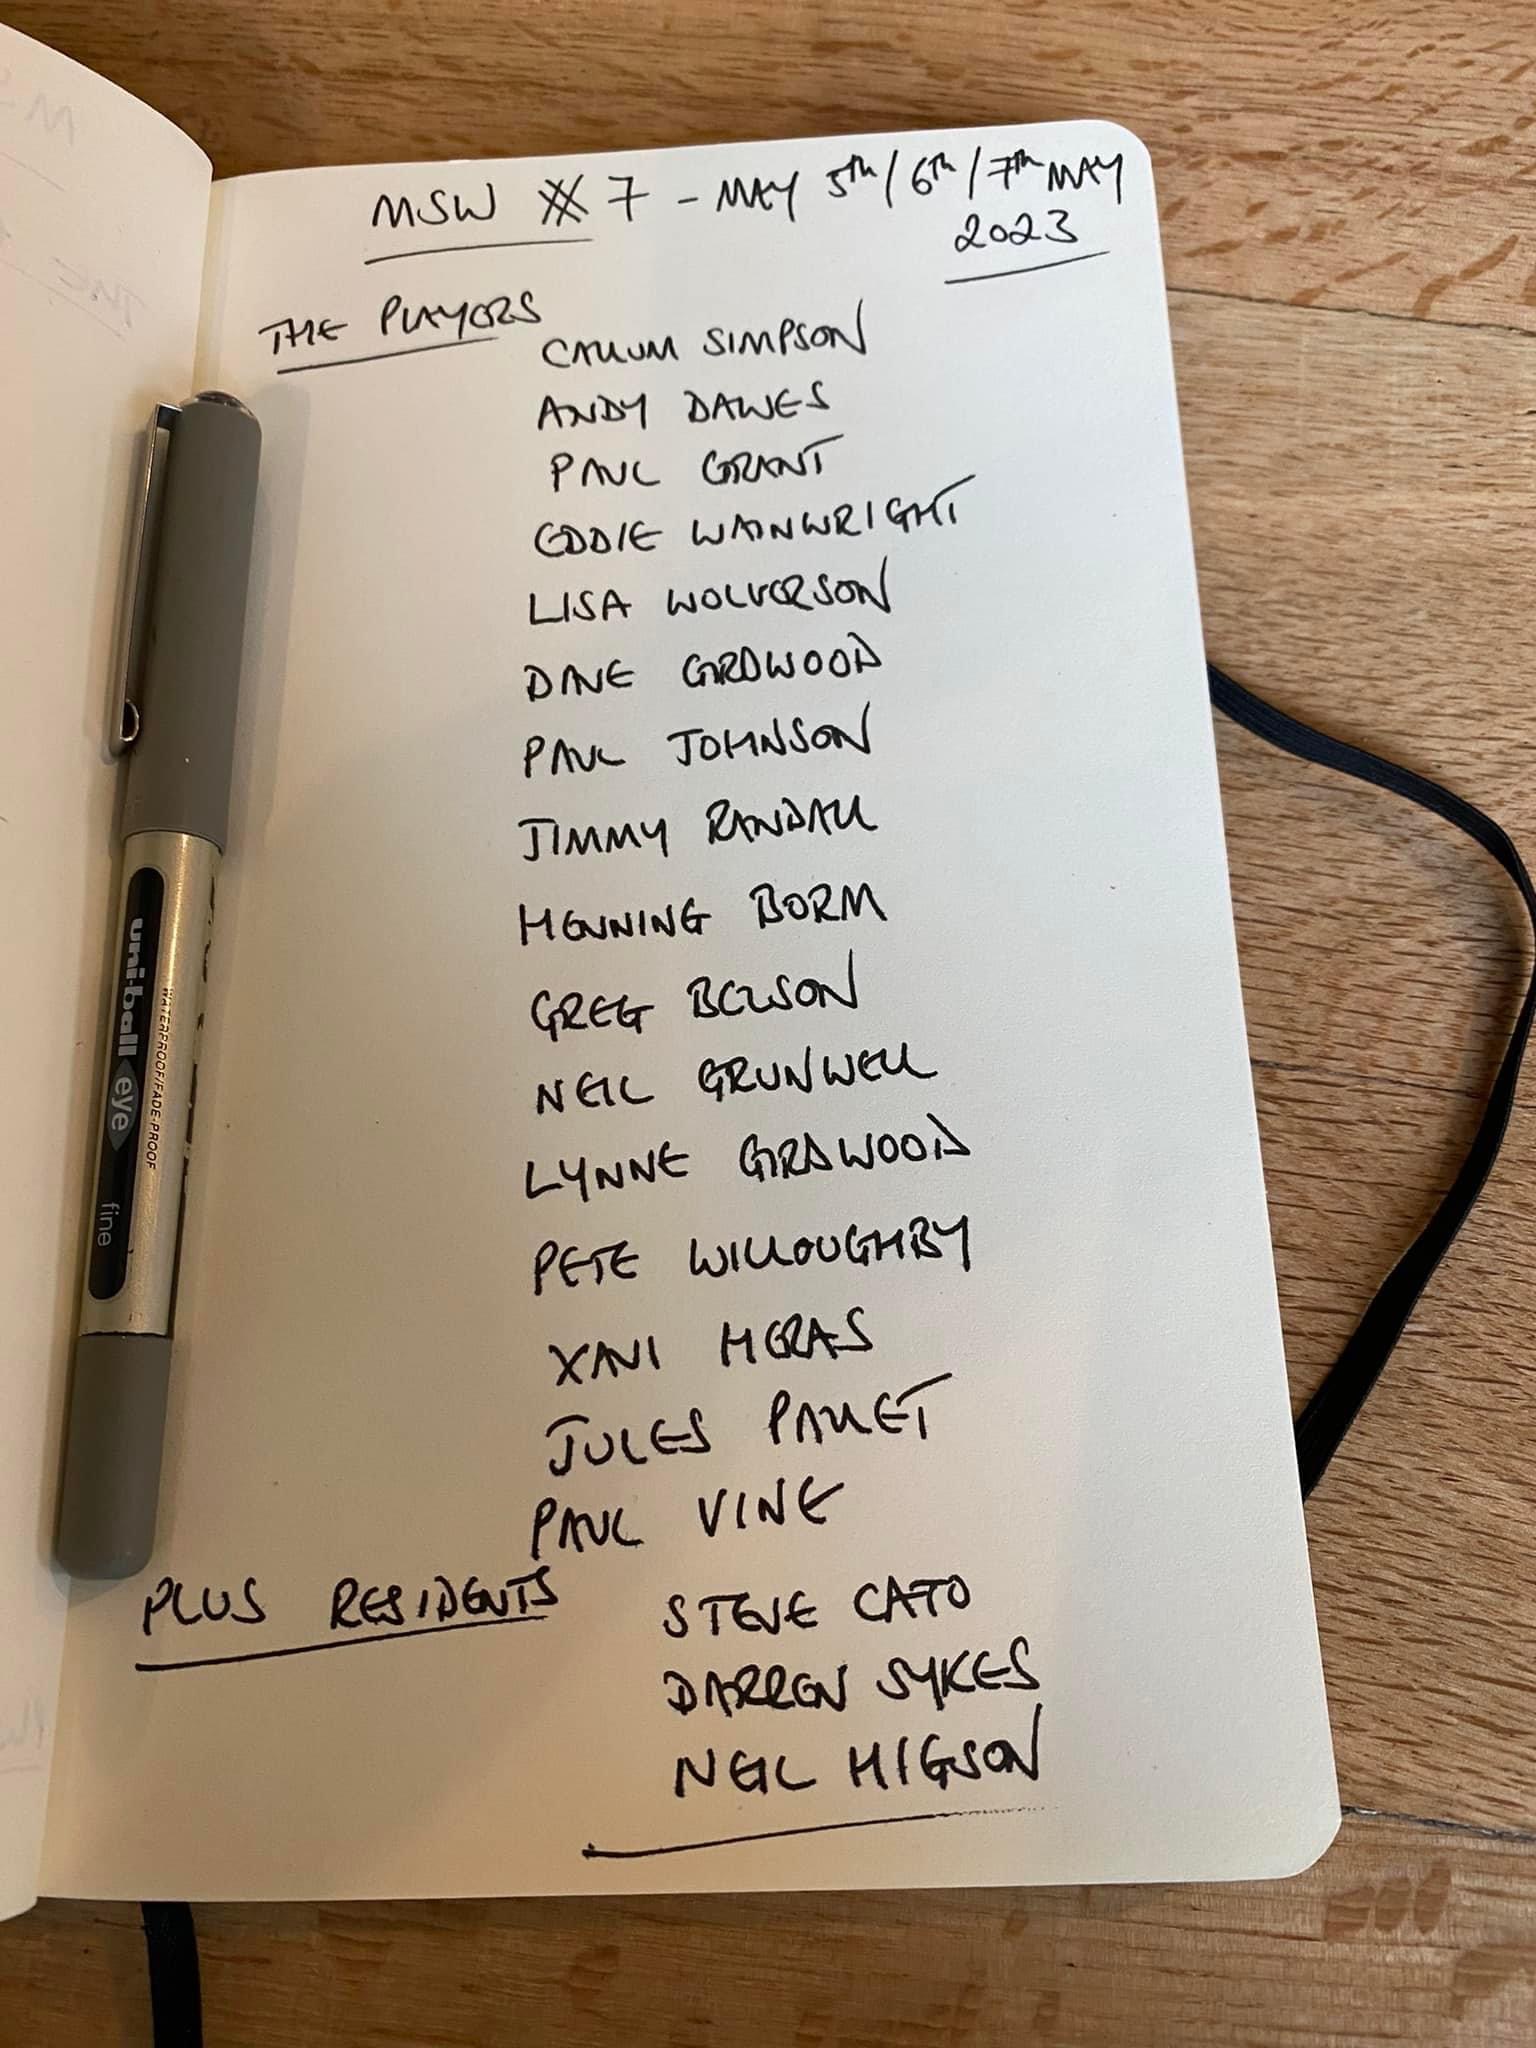 MSW # 7 - MAY 5th / 6th / 7th MAY
2023
THE PLAYERS
CALLUM SIMPSON
ANDY DAWES
PAUL GRANT
EDDIE WAINWRIGHT
LISA WOLVERSON
DAVE GIRDWOOD
PAUL JOHNSON
JIMMY RANDALL
HENNING BORM
GREG BELSON
NEIL GRUNWELL
LYNNE GIRDWOOD
PETE WILLOUGHBY
XAVI HERAS
JULES PALLET
PAUL VINE
PLUS RESIDENTS
STEVE CATO
DARREN SYKES
NEIL HIGSON
uni-ball eye fine
WATERPROOF/FADE-PROOF